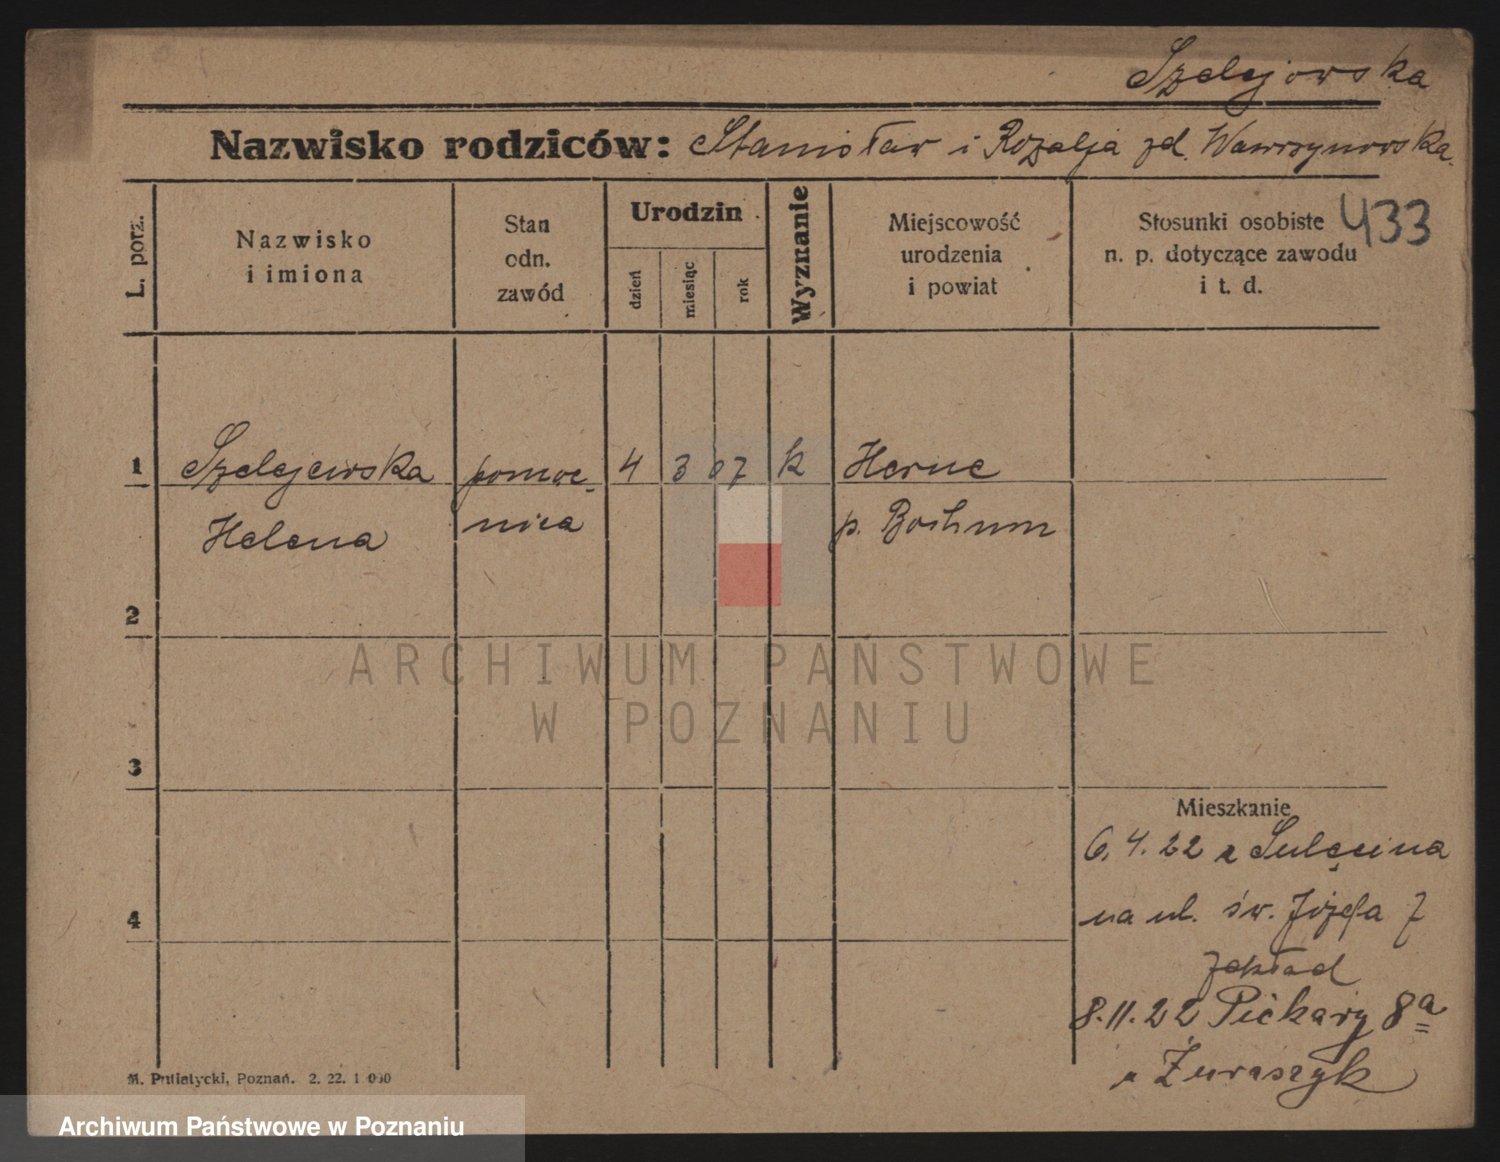 Szelejowska
Nazwisko rodziców: Stanisław i Rozalja zd. Wawrzynowska.
L. porz.
Nazwisko i imiona
Stan odn. zawód
Urodzin
dzień
miesiąc
rok
Wyznanie
Miejscowość urodzenia i powiat
Stosunki osobiste n. p. dotyczące zawodu i t. d.
433
1
Szelejewska
pomoc-
4
3
07
k
Herne
Helena
nica
p. Bochum
2
ARCHIWUM PAŃSTWOWE
W POZNANIU
3
Mieszkanie
6.4.22 z Sulęcina
na ul. św. Józefa 7
zakład
4
8.11.22 Piekary 8a
u Żuraszyk
M. Putiatycki, Poznań. 2. 22. 1 000
Archiwum Państwowe w Poznaniu